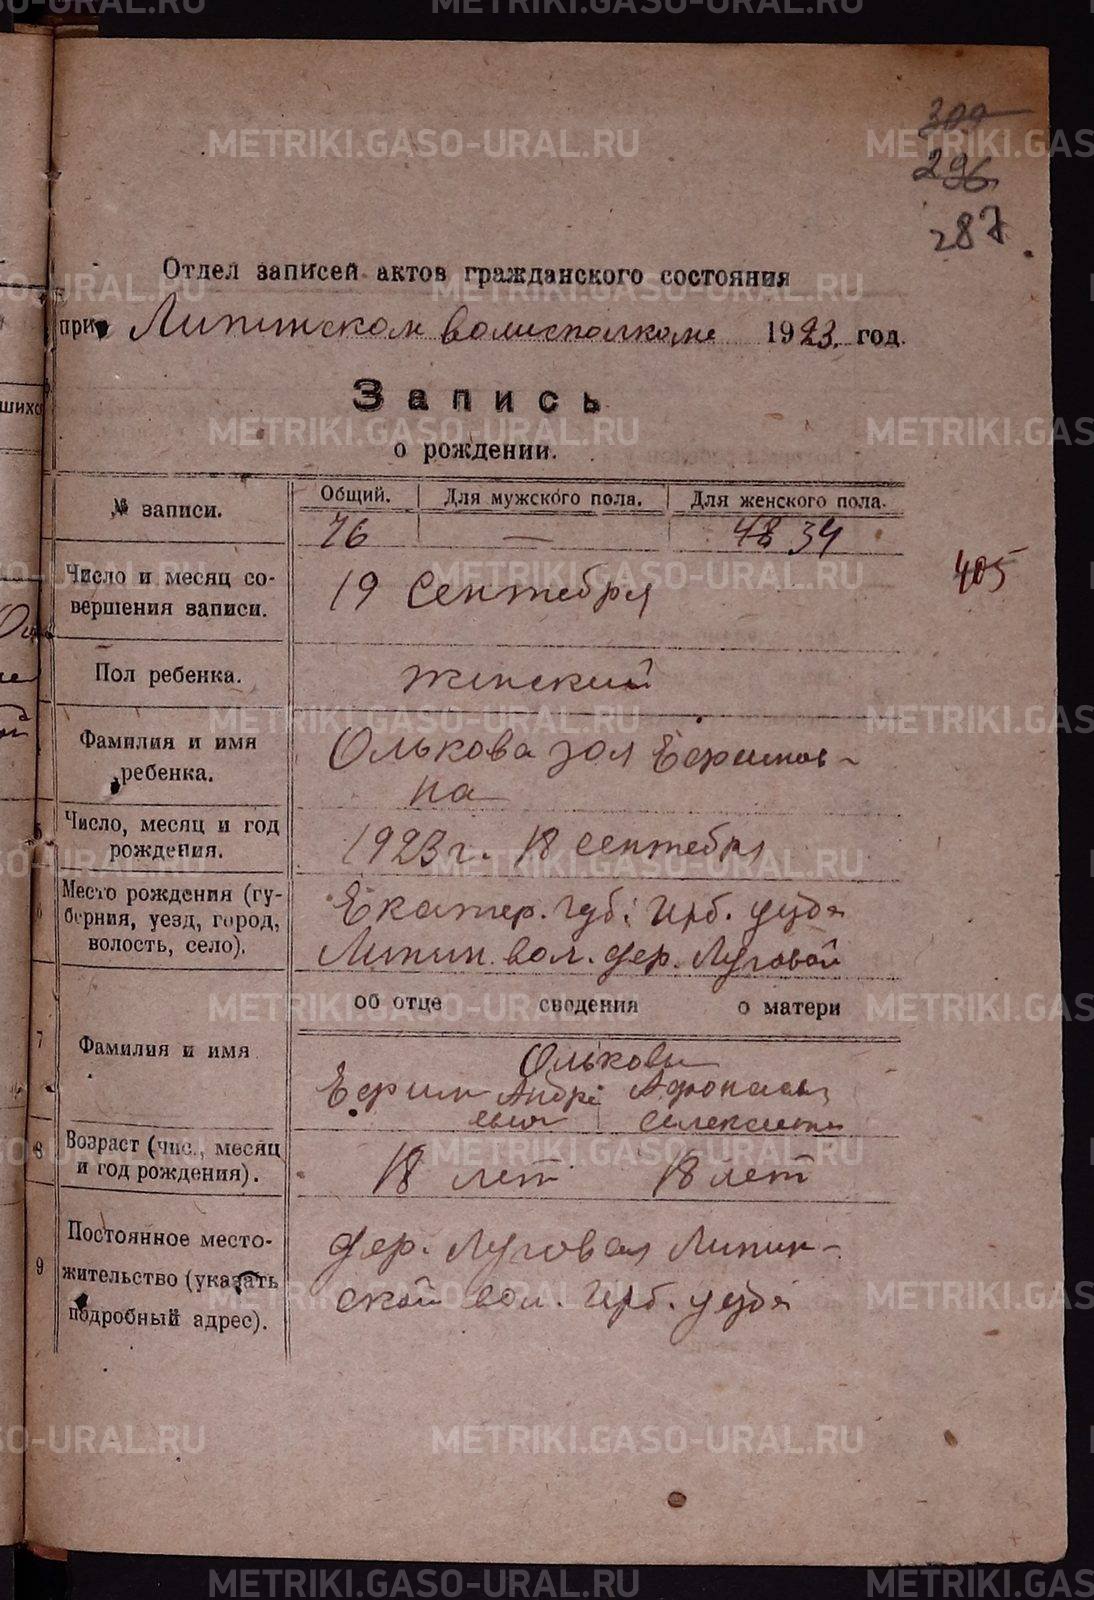 300
296
287
Отдел записей актов гражданского состояния
при Липинском волисполкоме 1923. год.
Запись
о рождении.
№ записи. Общий. Для мужского пола. Для женского пола.
76 — 48 34
405
Число и месяц со-
вершения записи. 19 Сентября
Пол ребенка. женский
Фамилия и имя
ребенка.
Олькова Зоя Ефимов-
на
Число, месяц и год
рождения. 1923 г. 18 сентября
Место рождения (гу-
берния, уезд, город,
волость, село).
Екатер. губ. Ирб. уезда
Липин. вол. дер. Луговой
об отце сведения о матери
7 Фамилия и имя
Ольковы
Ефим Андре
евич
8 Возраст (чис., месяц
и год рождения). 18 лет 18 лет
9 Постоянное место-
жительство (указать
подробный адрес).
дер. Луговая Липин-
ской вол. Ирб. уезда
METRIKI.GASO-URAL.RU